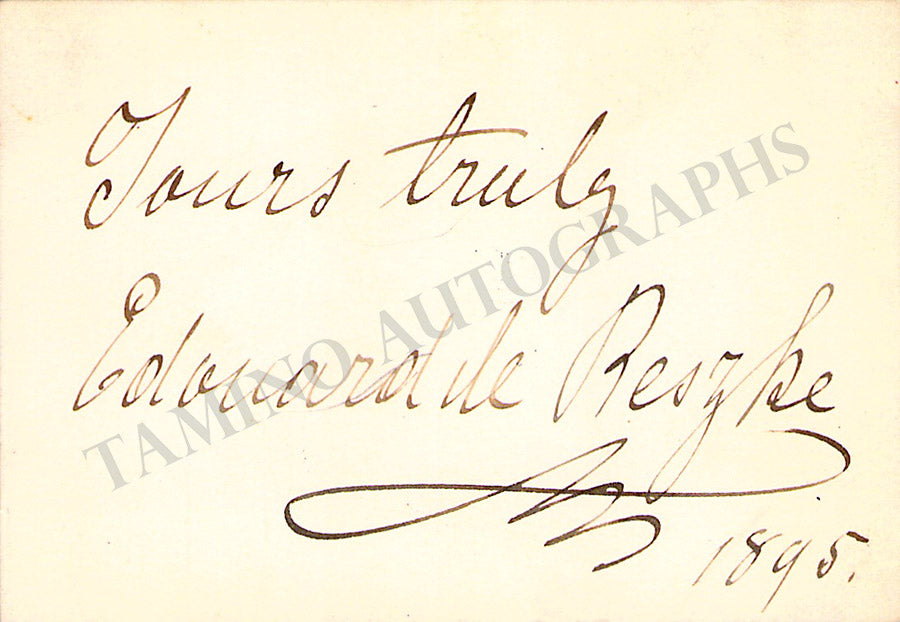 Yours truly
TAMINO AUTOGRAPHS
Edouard de Reszke
1895.